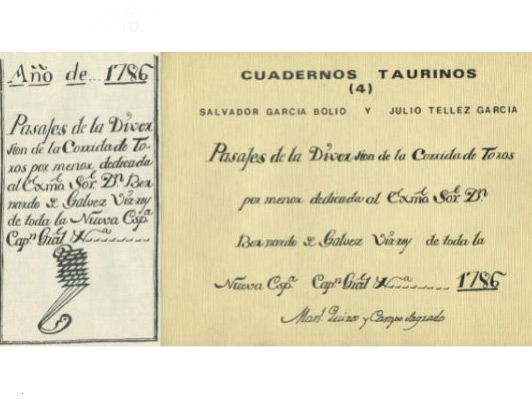 Año de... 1786
Pasajes de la Diver
sion de la Corrida de To-
ros por menor dedicada
al Exmô. Sor. Dn. Ber
nardo de Galvez Virrey
de toda la Nueva Espa
Capn. Gral. &a
CUADERNOS TAURINOS
(4)
SALVADOR GARCIA BOLIO Y JULIO TELLEZ GARCIA
Pasajes de la Diversion de la Corrida de Toros
por menor dedicada al Exmô. Sor. Dn.
Bernardo de Galvez Virrey de toda la
Nueva Espa Capn. Gral. &a 1786
Manl. Quiros y Campo Sagrado